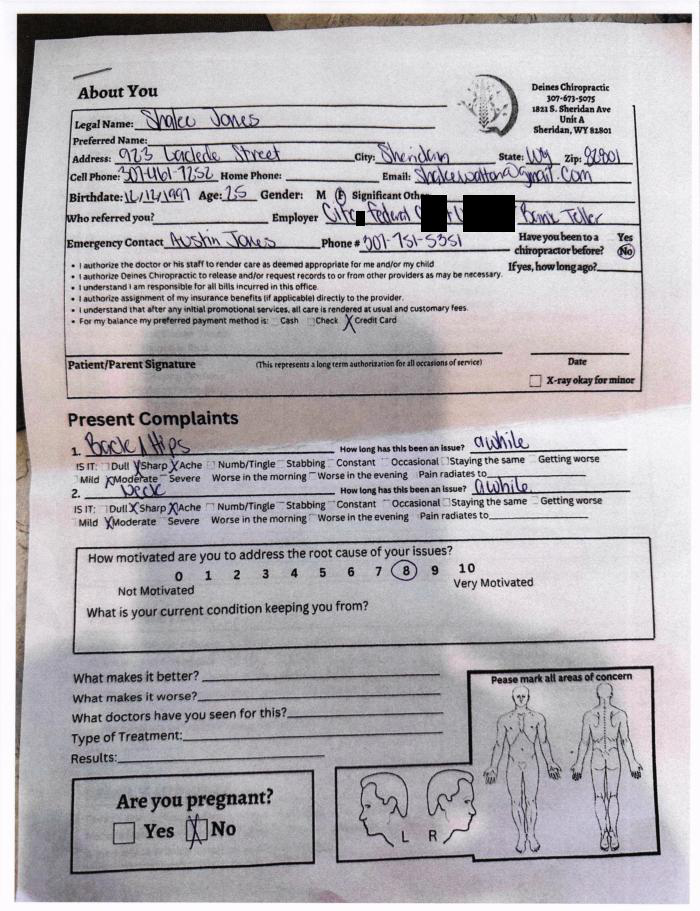 About You
Deines Chiropractic
307-673-5075
1821 S. Sheridan Ave
Unit A
Sheridan, WY 82801
Legal Name: Shalee Jones
Preferred Name:
Address: 923 Laclede Street City: Sheridan State: Wy Zip: 82801
Cell Phone: 307-461-7252 Home Phone: Email: Shaleewalton@gmail.com
Birthdate: 12/12/1997 Age: 25 Gender: M F Significant Other
Who referred you? Employer Federal Bank Teller
Emergency Contact Austin Jones Phone # 307-751-5351
Have you been to a chiropractor before? Yes No
If yes, how long ago?
• I authorize the doctor or his staff to render care as deemed appropriate for me and/or my child
• I authorize Deines Chiropractic to release and/or request records to or from other providers as may be necessary.
• I understand I am responsible for all bills incurred in this office.
• I authorize assignment of my insurance benefits (if applicable) directly to the provider.
• I understand that after any initial promotional services, all care is rendered at usual and customary fees.
• For my balance my preferred payment method is: Cash Check X Credit Card
Patient/Parent Signature (This represents a long term authorization for all occasions of service) Date
X-ray okay for minor
Present Complaints
1. Back / Hips How long has this been an issue? awhile
IS IT: Dull X Sharp X Ache Numb/Tingle Stabbing Constant Occasional Staying the same Getting worse
Mild X Moderate Severe Worse in the morning Worse in the evening Pain radiates to
2. Neck How long has this been an issue? awhile
IS IT: Dull X Sharp X Ache Numb/Tingle Stabbing Constant Occasional Staying the same Getting worse
Mild X Moderate Severe Worse in the morning Worse in the evening Pain radiates to
How motivated are you to address the root cause of your issues?
0 1 2 3 4 5 6 7 8 9 10
Not Motivated Very Motivated
What is your current condition keeping you from?
What makes it better?
What makes it worse?
What doctors have you seen for this?
Type of Treatment:
Results:
Pease mark all areas of concern
Are you pregnant?
Yes X No
L R